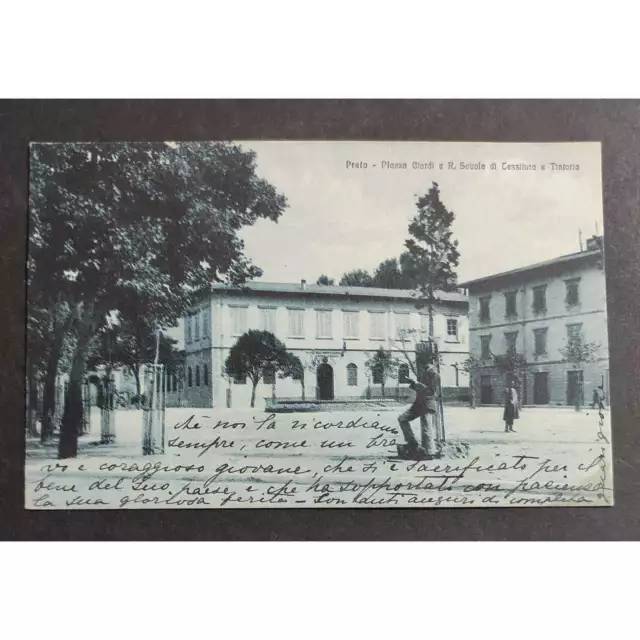 Prato - Piazza Ciardi e R. Scuola di Tessitura e Tintoria
chè noi la ricordiamo
sempre, come un bra
vo e coraggioso giovane, che si è sacrificato per il
bene del Suo paese e che ha sopportati con pazienza
la sua gloriosa ferita - Son tanti auguri di completa